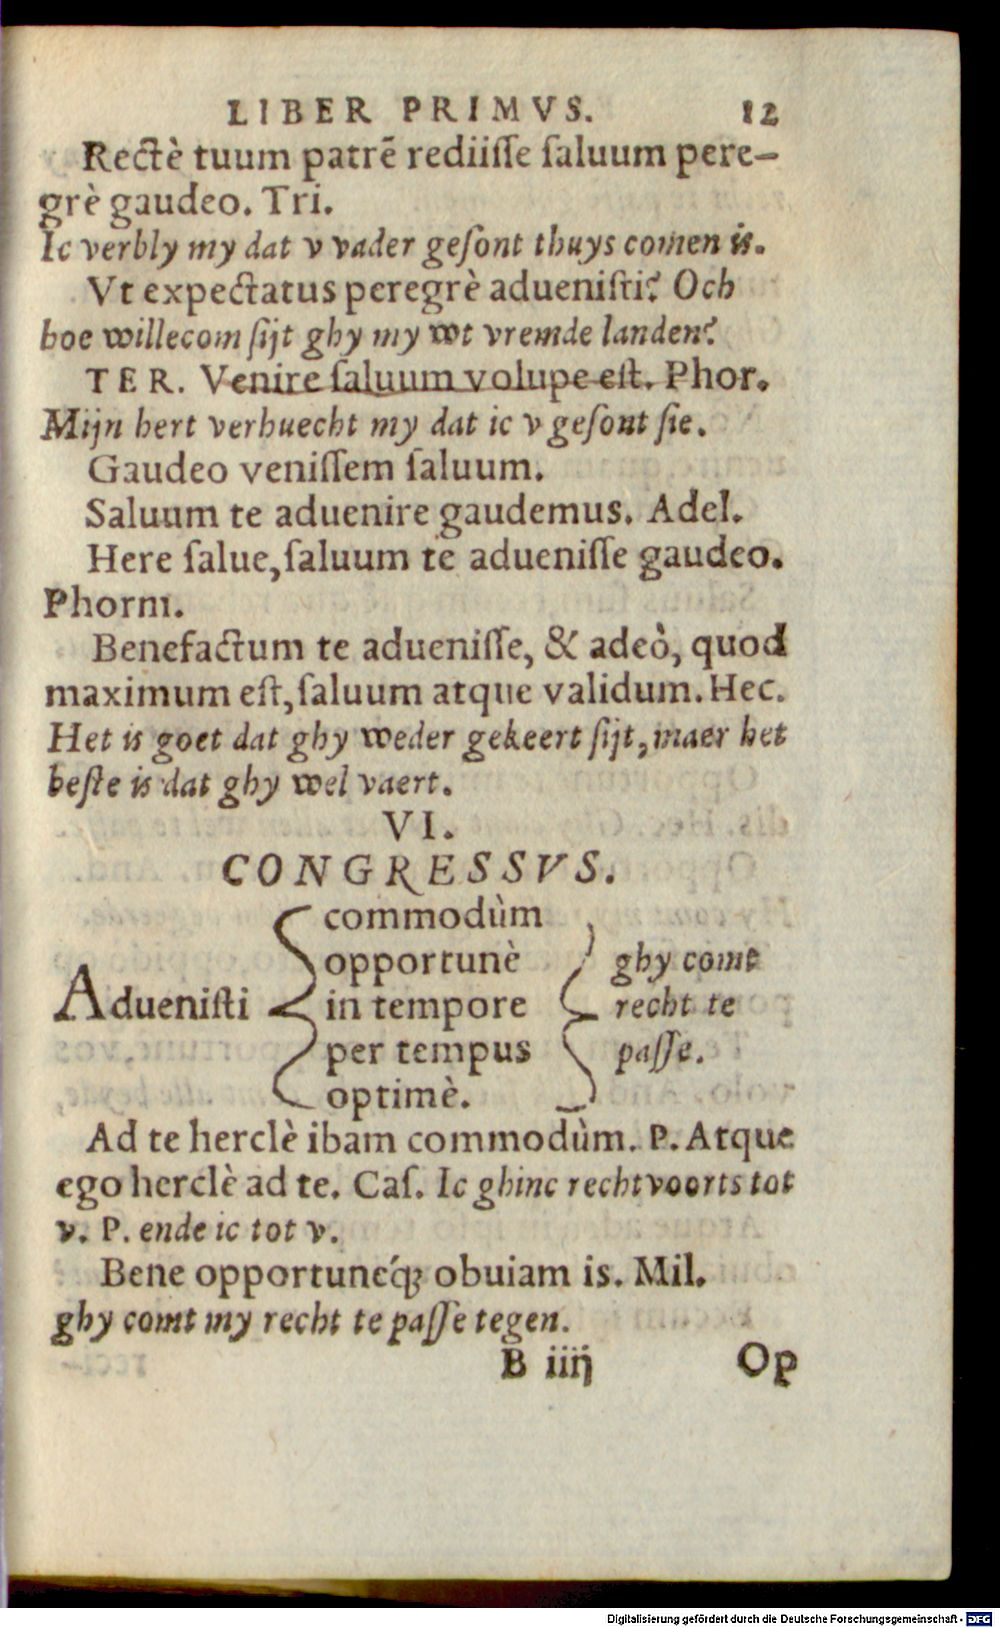 LIBER PRIMVS. 12
Rectè tuum patrē rediisſe ſaluum pere-
grè gaudeo. Tri.
Ic verbly my dat v vader geſont thuys comen is.
Vt expectatus peregrè adueniſti? Och
hoe willecom ſijt ghy my wt vremde landen?
TER. Venire ſaluum volupe eſt. Phor.
Mijn hert verhuecht my dat ic v geſont ſie.
Gaudeo veniſſem ſaluum.
Saluum te aduenire gaudemus. Adel.
Here ſalue, ſaluum te adueniſſe gaudeo.
Phorm.
Benefactum te adueniſſe, & adeò, quod
maximum eſt, ſaluum atque validum. Hec.
Het is goet dat ghy weder gekeert ſijt, maer het
beſte is dat ghy wel vaert.
VI.
CONGRESSVS.
commodùm
opportunè ghy comt
Adueniſti in tempore recht te
per tempus paſſe.
optimè.
Ad te herclè ibam commodùm. P. Atque
ego herclè ad te. Caſ. Ic ghinc recht voorts tot
v. P. ende ic tot v.
Bene opportuneq́ꝫ obuiam is. Mil.
ghy comt my recht te paſſe tegen.
B iiij Op
Digitalisierung gefördert durch die Deutsche Forschungsgemeinschaft - DFG